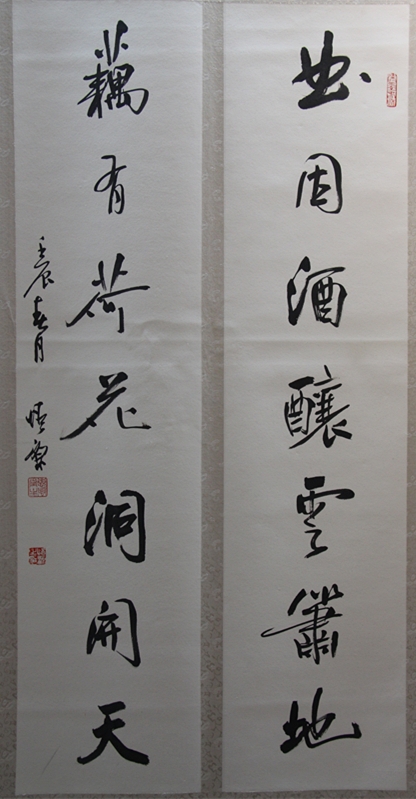 曲因酒釀雲簫地
藕有荷花洞開天
壬辰春月